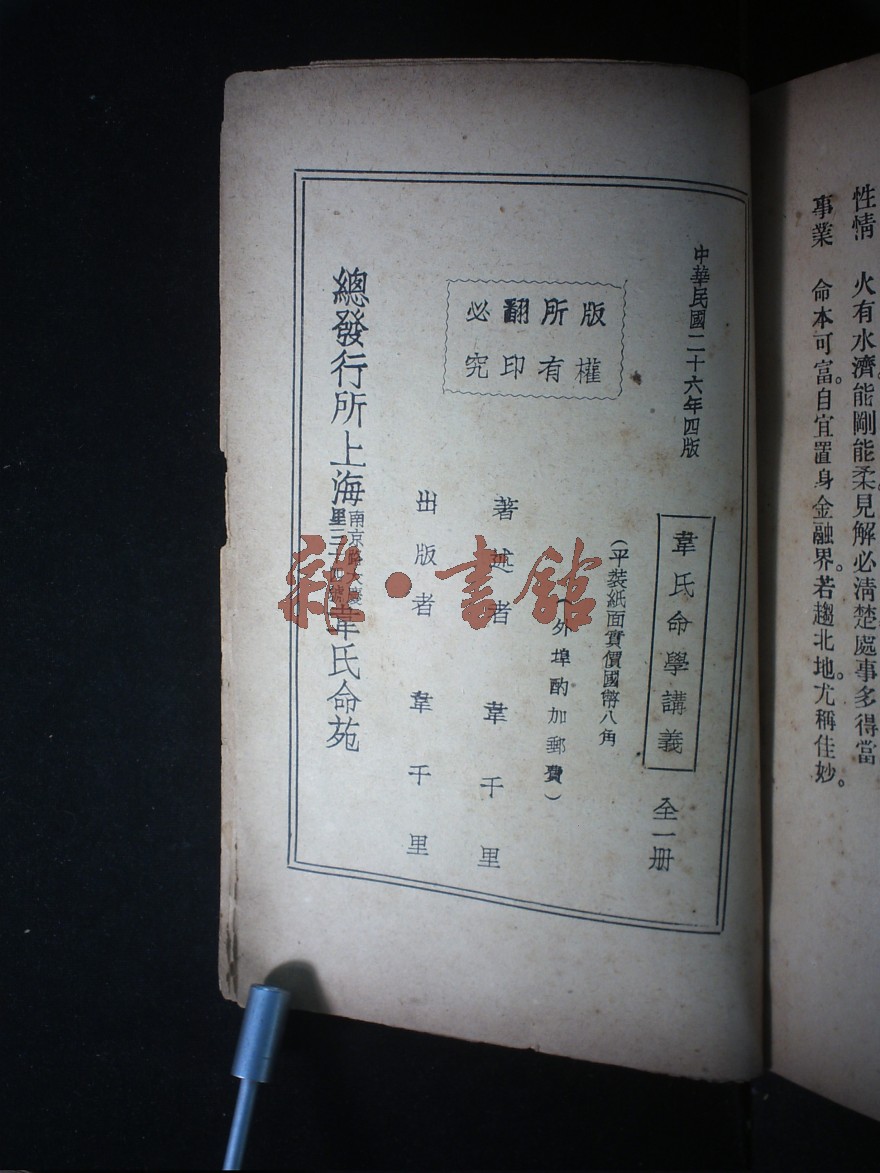 性情　火有水濟。能剛能柔。見解必清楚。處事多得當
事業　命本可富。自宜置身金融界。若趨北地。尤稱佳妙。
中華民國二十六年四版
韋氏命學講義　全一册
(平裝紙面實價國幣八角
(外埠酌加郵費)
版權
所有
翻印
必究
著述者　韋千里
出版者　韋千里
總發行所上海
南京路大慶
里
韋氏命苑
雜·書館